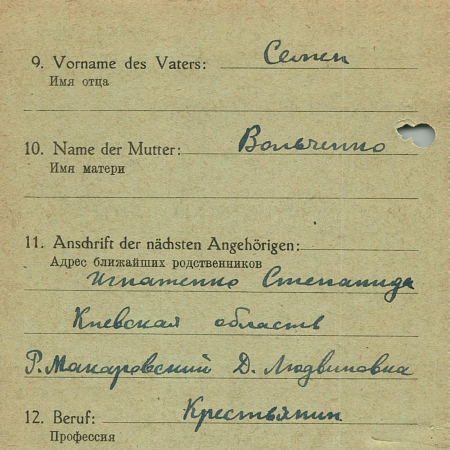 9. Vorname des Vaters: Семен
Имя отца
10. Name der Mutter: Вольченко
Имя матери
11. Anschrift der nächsten Angehörigen:
Адрес ближайших родственников
Игнатенко Степанида
Киевская область
Р. Макаровский Д. Людвиновка
12. Beruf: Крестьянин
Профессия